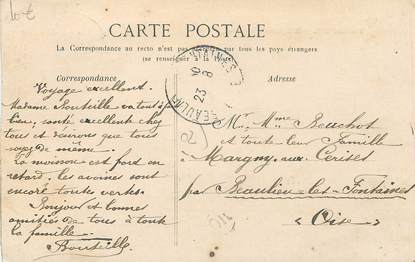 CARTE POSTALE
La Correspondance au recto n'est pas acceptée par tous les pays étrangers
(se renseigner à la Poste)
Correspondance
Adresse
Voyage excellent.
Madame Bouteille va tout à fait
bien, santé excellente chez
tous et désirons que tous
soyez de même.
La moisson est fort en
retard, les avoines sont
encore toutes vertes.
Bonjour et bonnes
amitiés de tous à toute
la famille.
Bouteille
BEAULIEU
23 8
Mr. Mme Bouchot
et toute leur Famille
à Margny-aux-Cerises
par Beaulieu-les-Fontaines
Oise